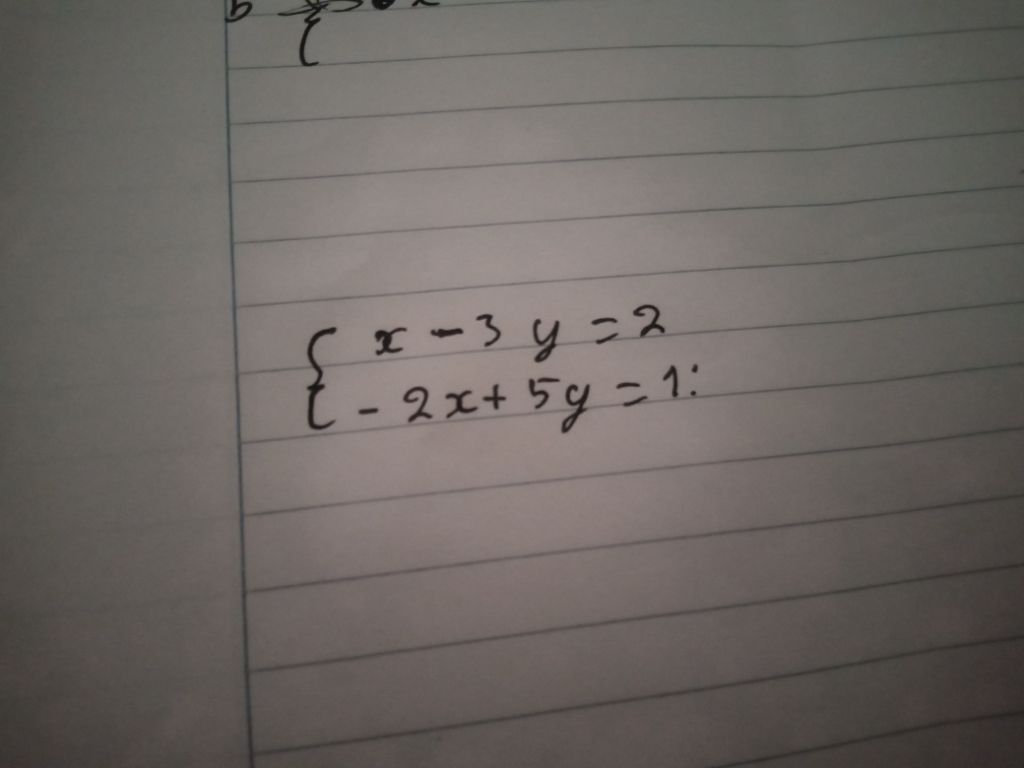 x - 3y = 2
- 2x + 5y = 1: